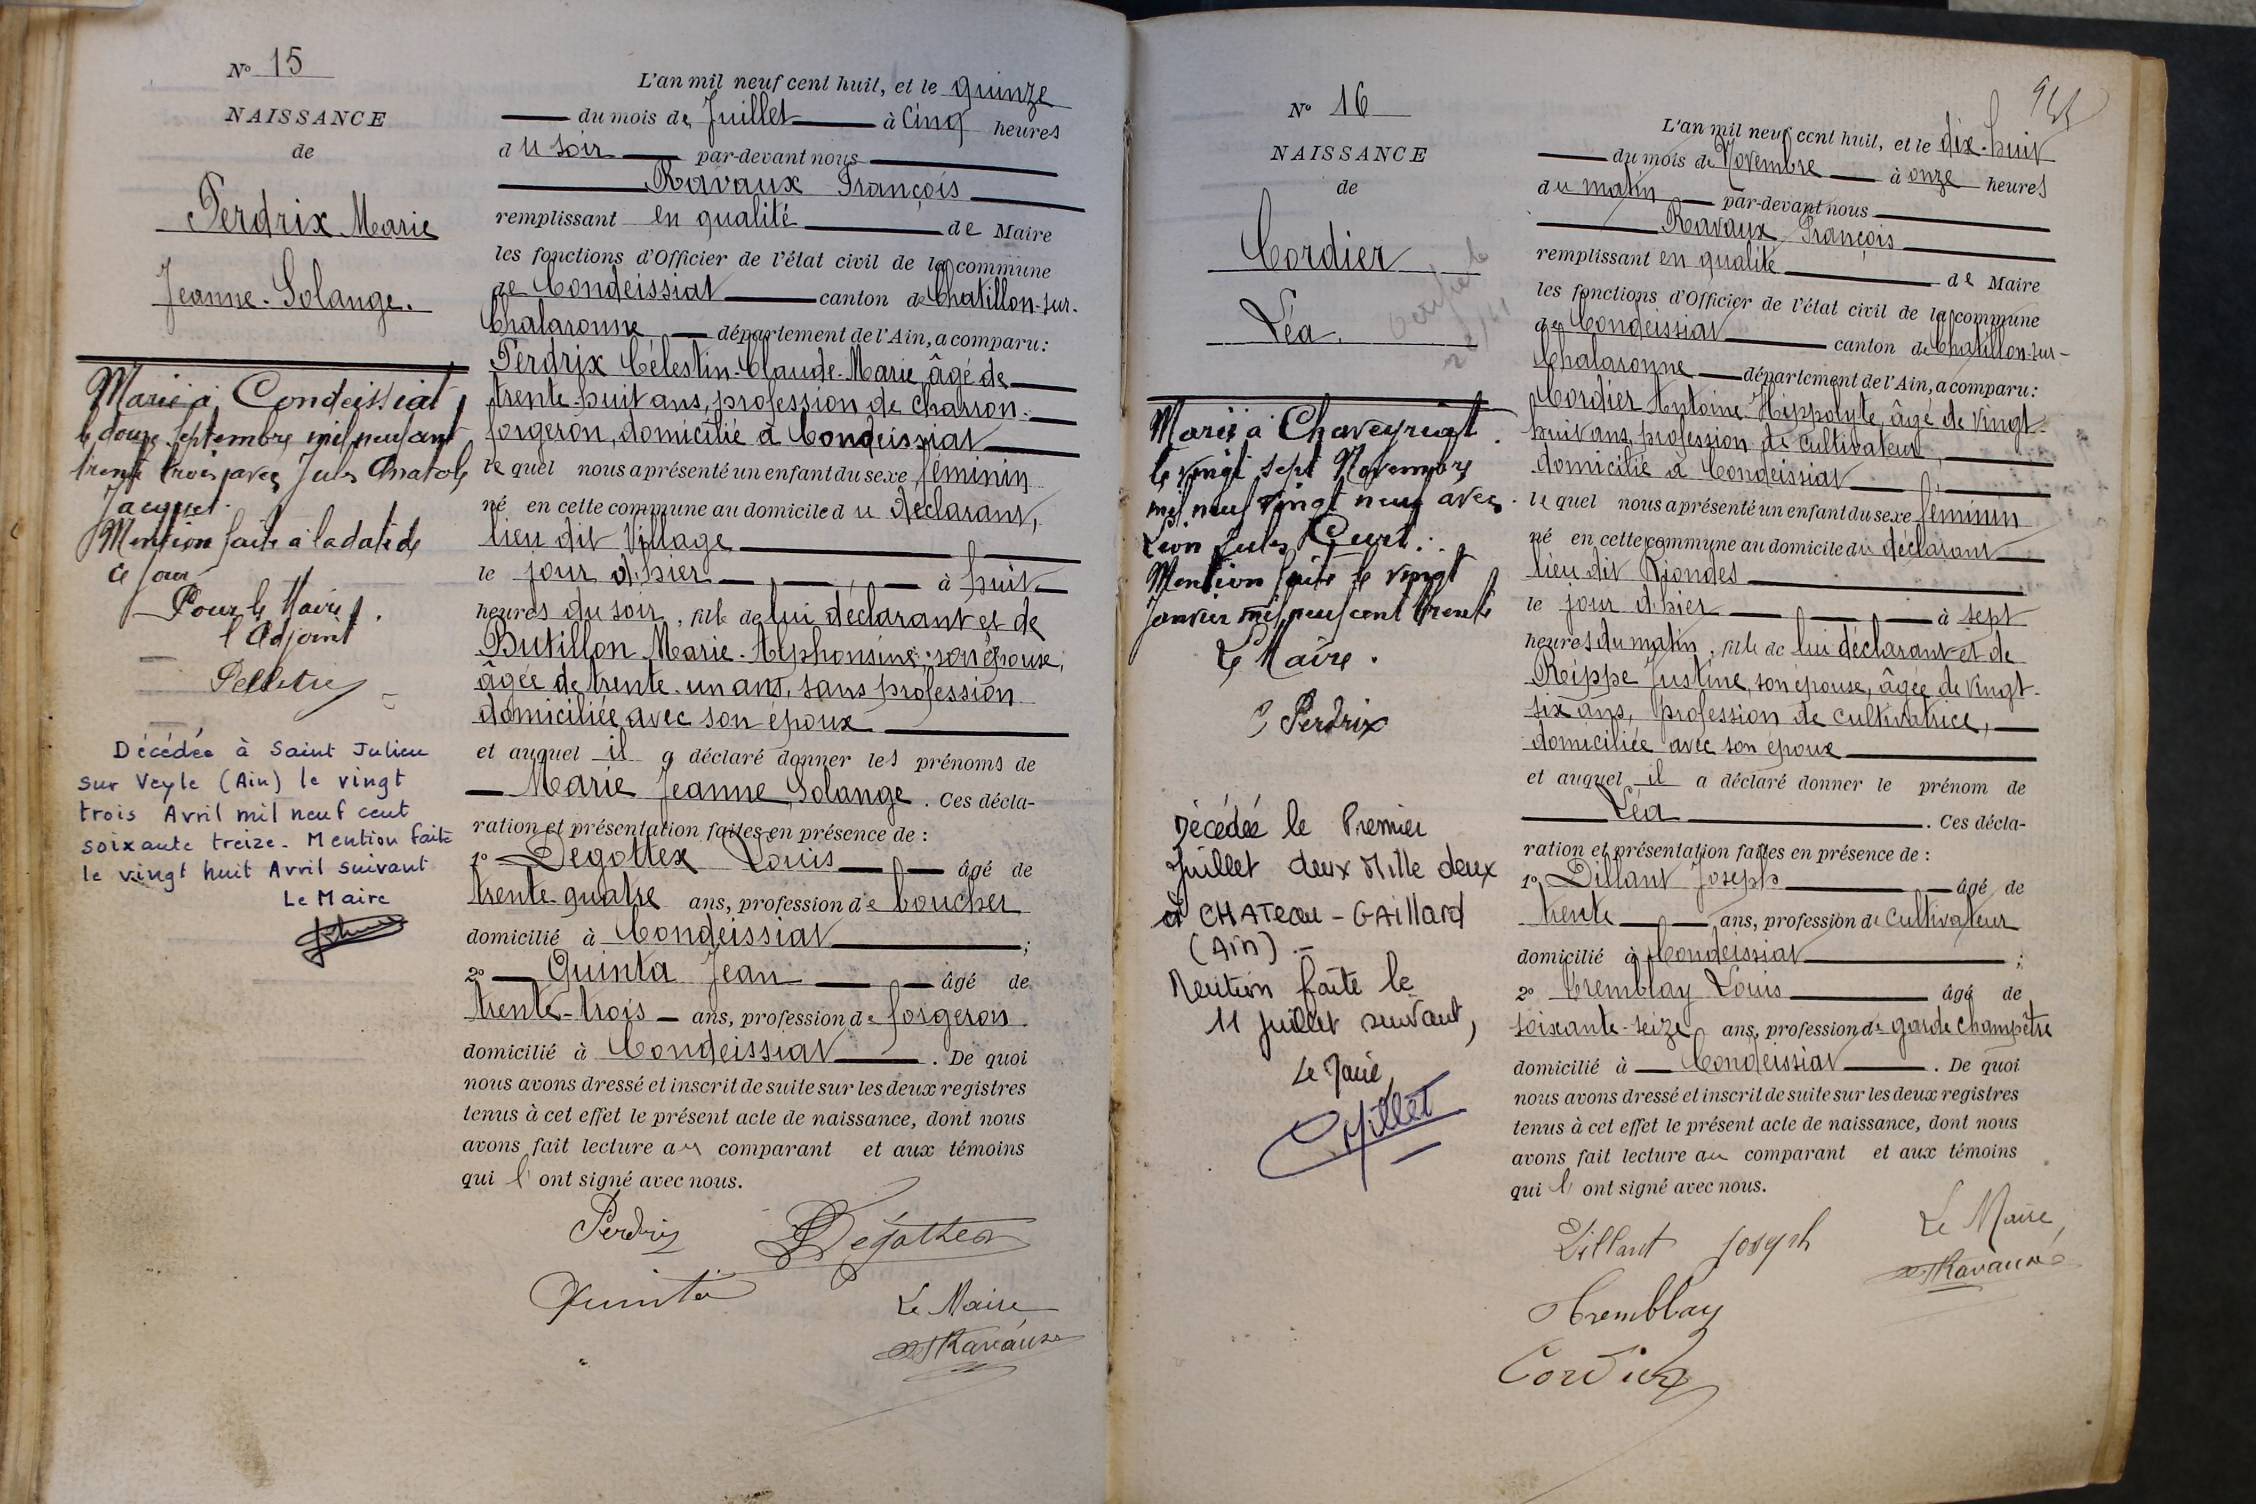 N° 15
NAISSANCE
de
Perdrix Marie
Jeanne-Solange.
Marié à Condeissiat,
le douze Septembre mil neuf cent
trente trois avec Jules Anatole
Jacquet.
Mention faite à la date de
ce jour
Pour le Maire,
l'Adjoint
Décédée à Saint Julien
sur Veyle (Ain) le vingt
trois Avril mil neuf cent
soixante treize. Mention faite
le vingt huit Avril suivant
Le Maire
L'an mil neuf cent huit, et le quinze
du mois de Juillet à Cinq heures
du soir par-devant nous
Ravaux François
remplissant en qualité de Maire
les fonctions d'Officier de l'état civil de la commune
de Condeissiat canton de Chatillon-sur-
Chalaronne département de l'Ain, a comparu:
Perdrix Célestin-Claude-Marie, âgé de
trente-huit ans, profession de charron-
forgeron, domicilié à Condeissiat
le quel nous a présenté un enfant du sexe féminin
né en cette commune au domicile du déclarant,
lieu dit Village
le jour d'hier à huit
heures du soir, fille de lui déclarant et de
Butillon Marie-Alphonsine, son épouse,
âgée de trente-un ans, sans profession
domiciliée avec son époux
et auquel il a déclaré donner les prénoms de
Marie Jeanne Solange. Ces décla-
ration et présentation faites en présence de:
1° Degottex Louis âgé de
trente-quatre ans, profession de boucher
domicilié à Condeissiat;
2° Quinta Jean âgé de
trente-trois ans, profession de forgeron
domicilié à Condeissiat. De quoi
nous avons dressé et inscrit de suite sur les deux registres
tenus à cet effet le présent acte de naissance, dont nous
avons fait lecture au comparant et aux témoins
qui l'ont signé avec nous.
Perdrix Dégottex
Quinta
Le Maire,
Ravaux
N° 16
NAISSANCE
de
Cordier
Léa.
Marié à Chaveyriat
le vingt sept Novembre
mil neuf vingt neuf avec
Léon Jules Curt.
Mention faite le vingt
Janvier mil neuf cent trente
Le Maire.
C Perdrix
Décédée le Premier
Juillet deux Mille deux
à CHATEAU-GAILLARD
(AIN).
Mention faite le
11 juillet suivant,
Le Maire,
L'an mil neuf cent huit, et le dix-huit
du mois de Novembre à onze heures
du matin par-devant nous
Ravaux François
remplissant en qualité de Maire
les fonctions d'Officier de l'état civil de la commune
de Condeissiat canton de Chatillon-sur-
Chalaronne département de l'Ain, a comparu:
Cordier Antoine Hippolyte, âgé de vingt-
huit ans, profession de cultivateur,
domicilié à Condeissiat
le quel nous a présenté un enfant du sexe féminin
né en cette commune au domicile du déclarant
lieu dit Riondes
le jour d'hier à sept
heures du matin, fille de lui déclarant et de
Rippe Justine, son épouse, âgée de vingt-
six ans, profession de cultivatrice,
domiciliée avec son époux
et auquel il a déclaré donner le prénom de
Léa. Ces décla-
ration et présentation faites en présence de:
1° Dillant Joseph âgé de
trente ans, profession de cultivateur
domicilié à Condeissiat;
2° Tremblay Louis âgé de
soixante-seize ans, profession de garde champêtre
domicilié à Condeissiat. De quoi
nous avons dressé et inscrit de suite sur les deux registres
tenus à cet effet le présent acte de naissance, dont nous
avons fait lecture au comparant et aux témoins
qui l'ont signé avec nous.
Dillant Joseph
Le Maire,
Ravaux
Tremblay
Cordier